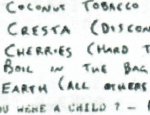 COCONUT TOBACCO
CRESTA (DISCON
CHERRIES (HARD T
BOIL IN THE BAG
EARTH (ALL OTHERS
OU WERE A CHILD ? -